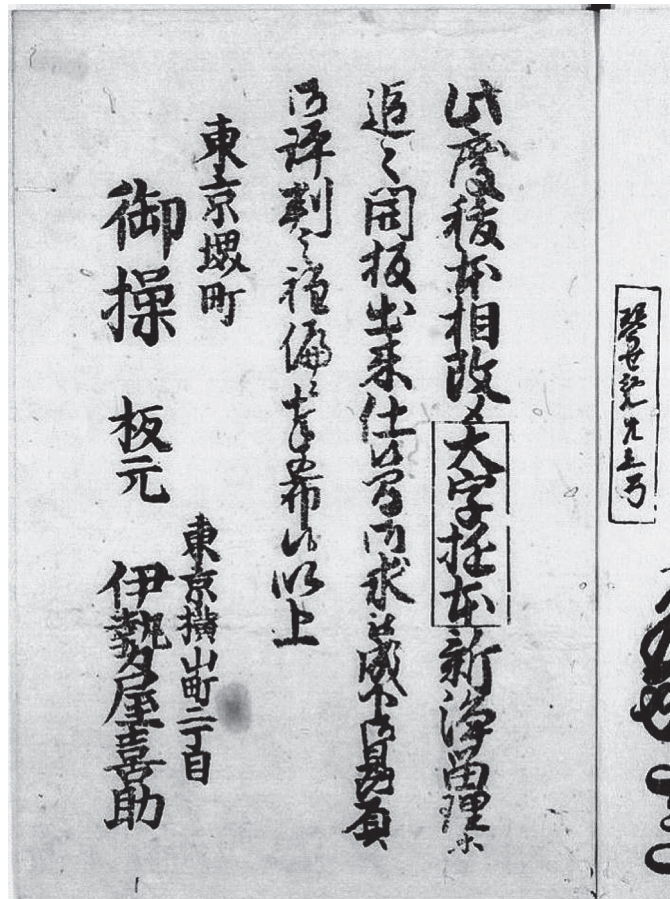 此度稽本相改メ大字抜本新浄留理等
追々開板出来仕候間御求被成下御贔負
御評判之程偏ニ奉希候以上
東京堺町
御操 板元
東京横山町二丁目
伊勢屋喜助